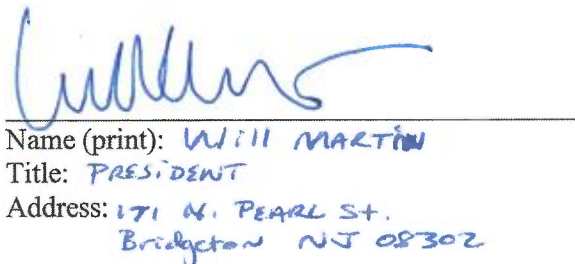 Name (print): Will MARTIN
Title: PRESIDENT
Address: 171 N. PEARL St.
Bridgeton NJ 08302